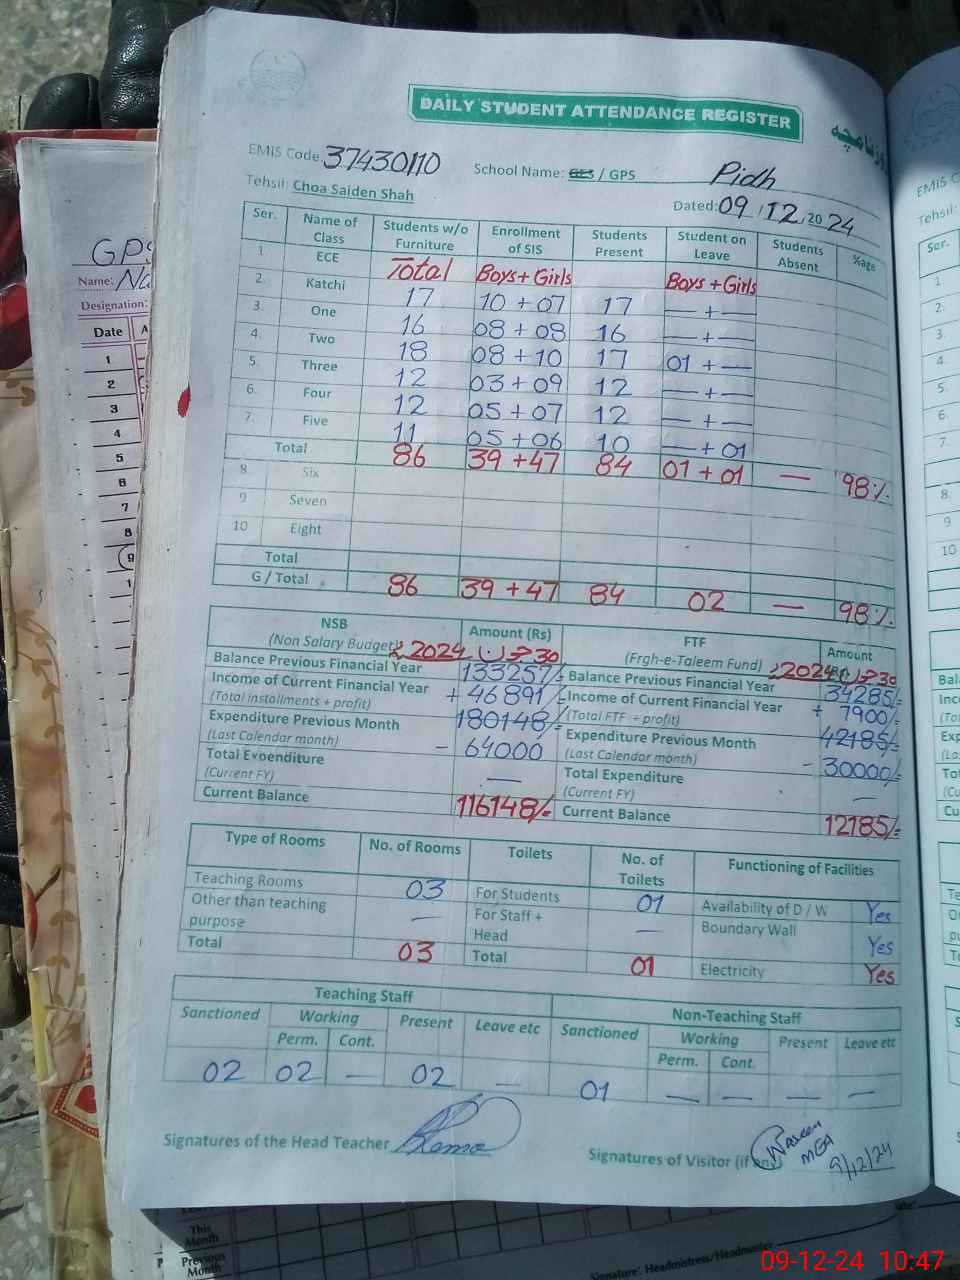 DAILY STUDENT ATTENDANCE REGISTER
EMIS Code 37430110 School Name: GES / GPS Pidh
Tehsil: Choa Saiden Shah Dated: 09 / 12 / 20 24
Ser. Name of Class Students w/o Furniture Enrollment of SIS Students Present Student on Leave Students Absent %age
1 ECE Total Boys + Girls Boys + Girls
2. Katchi 17 10 + 07 17 — + —
3. One 16 08 + 08 16 — + —
4. Two 18 08 + 10 17 01 + —
5. Three 12 03 + 09 12 — + —
6. Four 12 05 + 07 12 — + —
7. Five 11 05 + 06 10 — + 01
Total 86 39 + 47 84 01 + 01 — 98%
8 Six
9 Seven
10 Eight
Total
G / Total 86 39 + 47 84 02 — 98%
NSB Amount (Rs) FTF Amount
(Non Salary Budget) 2024 30 جون (Frgh-e-Taleem Fund) 2024 30 جون
Balance Previous Financial Year 133257/- Balance Previous Financial Year 34285/-
Income of Current Financial Year + 46891/- Income of Current Financial Year + 7900/-
(Total installments + profit) (Total FTF + profit)
Expenditure Previous Month 180148/- Expenditure Previous Month 42185/-
(Last Calendar month) - 64000 (Last Calendar month) - 30000/-
Total Exoenditure — Total Expenditure —
(Current FY) (Current FY)
Current Balance 116148/- Current Balance 12185/-
Type of Rooms No. of Rooms Toilets No. of Toilets Functioning of Facilities
Teaching Rooms 03 For Students 01 Availability of D / W Yes
Other than teaching purpose — For Staff + Head — Boundary Wall Yes
Total 03 Total 01 Electricity Yes
Teaching Staff Non-Teaching Staff
Sanctioned Working Present Leave etc Sanctioned Working Present Leave etc
Perm. Cont. Perm. Cont.
02 02 — 02 — 01 — — — —
Signatures of the Head Teacher
Signatures of Visitor (if any) Waseem
MEA
9/12/24
GPS
Name: Na
Designation:
Date A
1
2
3
4
5
6
7
8
9
1
EMIS C
Tehsil:
Ser.
1
2.
3.
4.
5.
6.
7.
8.
9
10
This Month
Previous Month
Signature: Headmistress/Headmaster
09-12-24 10:47